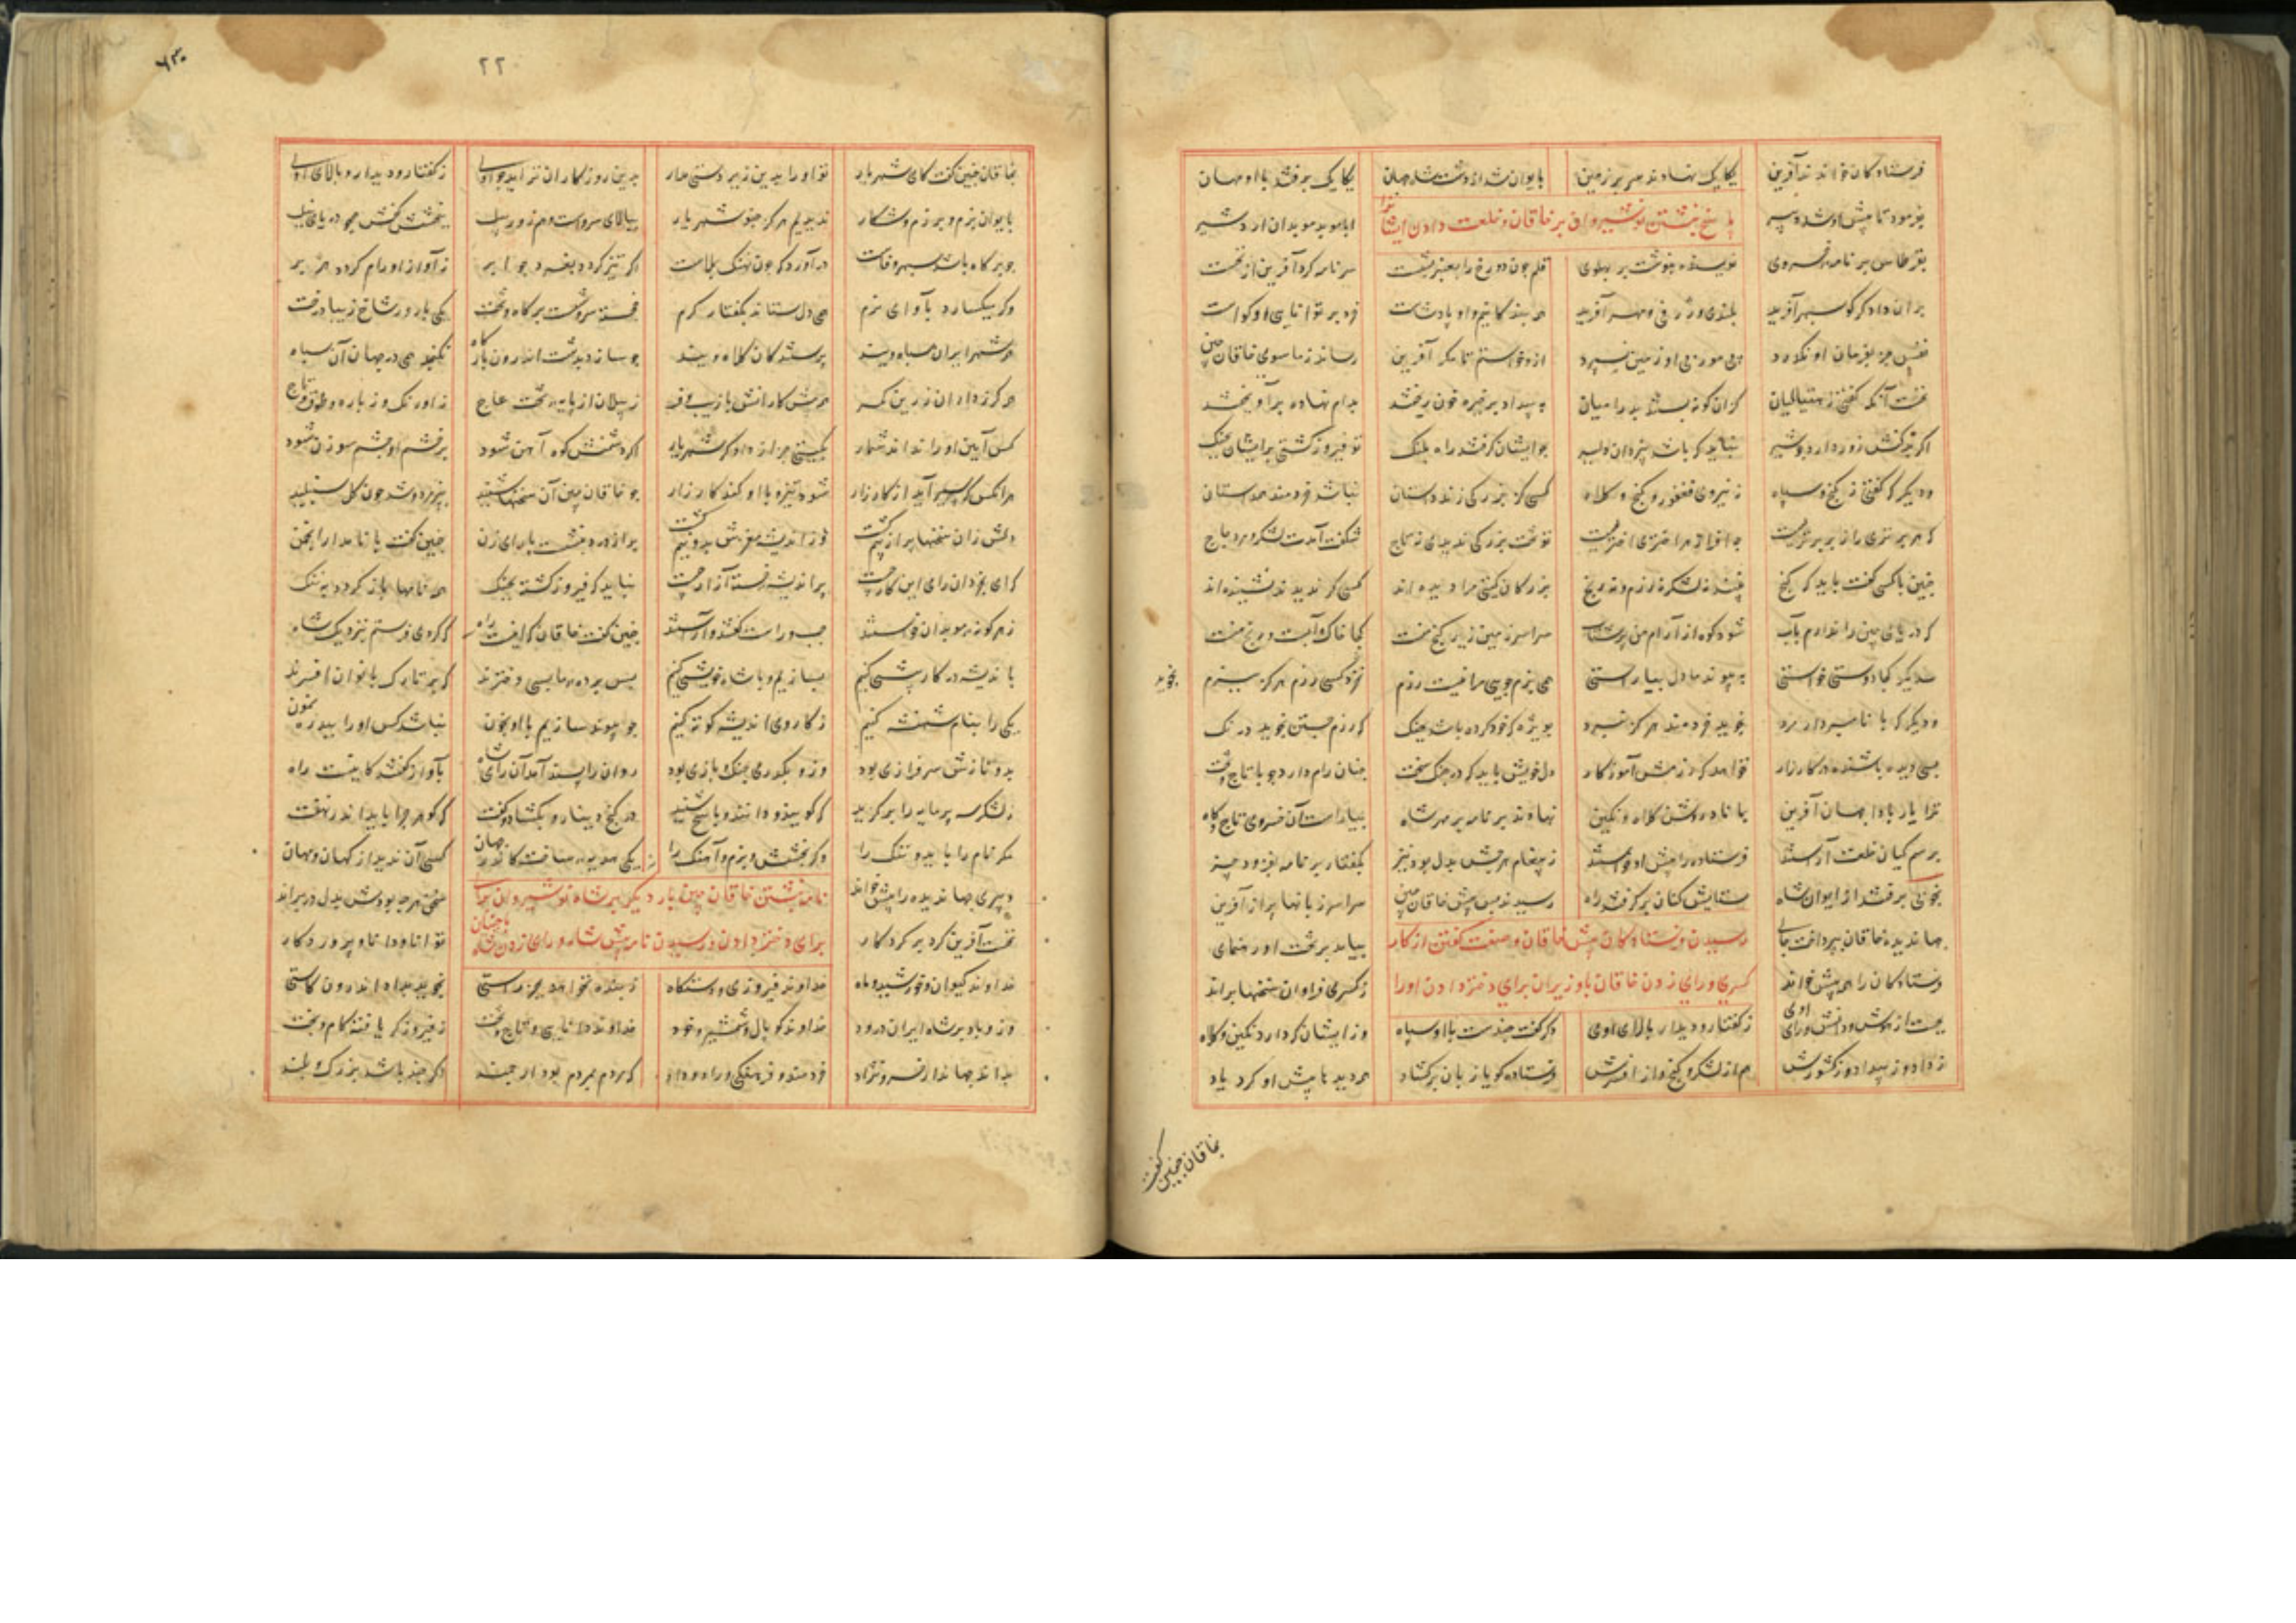 فرستادگان خواندند آفرین یکایک نهادند سر بر زمین بایوان شد شاه جهان یکایک برفتند با او مهان
بفرمود تا پیش او شد دبیر ابا موبد موبدان اردشیر
پاسخ نبشتن نوشیروان بر خاقان و خلعت دادن
بقرطاس بر نامه خسروی نویسنده بنوشت بر پهلوی قلم چون دو رخ را بعنبر بشست سر نامه کرد آفرین از نخست
بران دادگر کو سپهر آفرید بلندی و ژرفی و مهر آفرید همه بنده کانیم و او پادشاست خرد بر توانایی او گواست
نفس جز بفرمان او نگذرد پی مور بی او زمین نسپرد ازو خواستم تا مگر آفرین رساند ز ما سوی خاقان چین
نخست آنکه گفتی ز هیتالیان کزان گونه بستند بد را میان به بیداد بر خیره خون ریختند بدام نهاده برآویختند
اگر بدکنش زور دارد چو شیر نباید که باشد بیزدان دلیر چو ایشان گرفتند راه پلنگ تو فیروز گشتی بریشان بجنگ
و دیگر که گفتی ز گنج و سپاه ز نیروی فغفور و گنج و کلاه کسی کز بزرگی زند داستان نباشد خردمند همداستان
تو تخت بزرگی ندیدی نه تاج شگفت آمدت لشکر و مرد چاج
چنین با کسی گفت باید که گنج نبیند نه لشکر نه رزم و نه رنج بزرگان گیتی مرا دیده اند کسی کم ندیدند بشنیده اند
که دریای چین را ندارم بآب شود کوه از آرام من پرشتاب سراسر زمین زیر گنج منست کجا خاک و آبست و رنج منست
سدیگر کجا دوستی خواستی به پیوند ما دل بیاراستی همی بزم جویی مرا نیست رزم نخرد کسی رزم هرگز ببزم
بخرید
و دیگر که با نامبردار مرد نجوید خردمند هرگز نبرد بویژه که خود کرده باشد بجنگ که رزم جستن نجوید درنگ
بسی دیده باشنده در کارزار نخواهد که رزمش آموزگار دل خویش باید که در جنگ سخت چنان رام دارد چو با تاج و تخت
ترا یار بادا جهان آفرین بماناد روشن کلاه و نگین نهادند بر نامه بر مهر شاه بیاراست آن خسروی تاج و گاه
برسم کیان خلعت آراستند فرستاده را پیش او خواستند ز پیغام هرچش بدل بود نیز بگفتار بر نامه بفزود چیز
بخوبی برفتند از ایوان شاه ستایش کنان برگرفتند راه رسیدند پس پیش خاقان چین سراسر زبانها پر از آفرین
جهاندیده خاقان بپرداخت جای بیامد بر تخت او رهنمای
رسیدن فرستادگان پیش خاقان و صفت گفتن از کار
فرستادگان را همه پیش خواند ز کسری فراوان سخنها براند
کسری و رای زدن خاقان با وزیران برای دختر دادن او را
نخست از هوش و دانش و رای اوی ز گفتار و دیدار و بالای اوی دگر گفت چندست با او سپاه وز ایشان که دارد نگین و کلاه
ز داد و ز بیداد و ز کشورش هم از لشکر و گنج و از افسرش فرستاده گویا زبان برگشاد همه دیدها پیش او کرد یاد
بخاقان چنین گفت
۲۲
بخاقان چنین گفت کای شهریار تو او را بدین زیردستی مدار بدین روزگاران ندیدیم ز گفتار و دیدار و بالای اوی
بایوان بزم و برزم و شکار ندیدیم هرگز چنو شهریار ببالای سروست و هم زور پیل ببخشش کفش همچو دریای نیل
چو بر گاه باشد سپهر وفاست درآوردگه چون نهنگ بلاست اگر تیز گردد بغرد چو ابر ز آواز او رام گردد هژبر
وگر میگسارد بآوای نرم همی دل ستاند بگفتار گرم خجسته سروشست بر گاه و تخت یکی بارور شاخ زیبا درخت
همه شهر ایران سپاه ویند پرستندگان کلاه ویند چو سازد بدشت اندرون بارگاه نگنجد همی در جهان آن سپاه
همه گرزداران زرین کمر همه پیشکارانش با زیب و فر ز پیلان و از پایه تخت عاج ز اورنگ و ز یاره و طوق و تاج
کس آیین او را نداند شمار بگیتی جز از دادگر شهریار اگر دشمنش کوه آهن شود بر خشم او چشم سوزن شود
هر آنکس که سیر آید از کارزار شود تیز و با او کند کارزار چو خاقان چین آن سخنها شنید بپژمرد و شد چون گل شنبلید
دلش زان سخنها پر از بیم گشت وز اندیشه مغزش بدو نیم گشت پر از درد بنشست با رای زن چنین گفت با نامدار انجمن
که ای بخردان رای این کار چیست پر اندیشه و خسته ز آزار کیست نباید که فیروز گشته بجنگ همه نامها باز گردد به ننگ
ز هر گونه موبدان خواستند چپ و راست گفتند و آراستند چنین گفت خاقان که اینست راه که مردی فرستم بنزدیک شاه
باندیشه در کار پیشی کنیم بسازیم و با شاه خویشی کنیم پس پرده ما بسی دخترند که بر تارک بانوان افسرند
یکی را بنام شهنشه کنیم ز کار وی اندیشه کوته کنیم چو پیوند سازیم با او بخون نباشد کس او را ببد رهنمون
بدو نازش و سرفرازی بود وزو بگذری جنگ بازی بود ردان را پسند آمد آن رای شاه بآواز گفتند کاینست راه
ز لشکر سه پرمایه را برگزید که گویند و دانند و پاسخ شنید در گنج دینار بگشاد و گفت که گوهر چرا باید اندر نهفت
مگر نام را باید و ننگ را وگر بخشش و بزم و آهنگ را یکی هدیه ساخت کاندر جهان کسی آن ندید از کهان و مهان
دبیری جهاندیده را پیش خواند سخن هرچه بودش بدل در براند
نامه نبشتن خاقان چین بار دیگر بر شاه نوشیروان
نخست آفرین کرد بر کردگار توانا و دانا و پروردگار
برای دختر دادن و رسیدن نامه پیش شاه و رای زدن شاه
خداوند کیوان و خورشید و ماه خداوند فیروزی و دستگاه ز بنده نخواهد بجز راستی نجوید بداد اندرون کاستی
وزو باد بر شاه ایران درود خداوند گوپال و شمشیر و خود خداوند دانایی و تاج و تخت ز فیروزگر یافته کام و بخت
بداند جهاندار خسرو نژاد خردمند و فرهنگی و راد که مردم بمردم بود ارجمند اگر چند باشد بزرگ و بلند